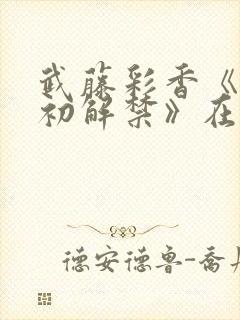 武藤彩香《
初解禁》在
德安德鲁-乔